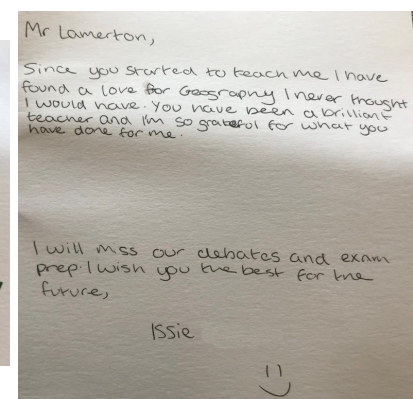 Mr Lamerton,
Since you started to teach me I have
found a love for Geography I never thought
I would have. You have been a brilliant
teacher and I'm so grateful for what you
have done for me.
I will miss our debates and exam
prep. I wish you the best for the
future,
Issie